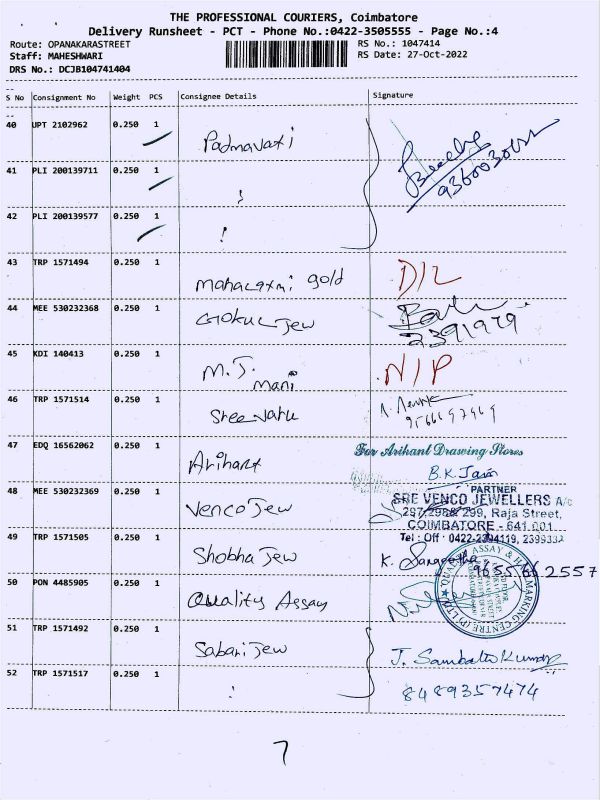 THE PROFESSIONAL COURIERS, Coimbatore
Delivery Runsheet - PCT - Phone No.:0422-3505555 - Page No.:4
Route: OPANAKARASTREET
Staff: MAHESHWARI
DRS No.: DCJB104741404
RS No.: 1047414
RS Date: 27-Oct-2022
S No Consignment No Weight PCS Consignee Details Signature
40 UPT 2102962 0.250 1 Padmavati
41 PLI 200139711 0.250 1
42 PLI 200139577 0.250 1
43 TRP 1571494 0.250 1 Mahalaxmi gold D/L
44 MEE 530232368 0.250 1 Gokul Jew
2391979
45 KDI 140413 0.250 1 M.J. Mani N/P
46 TRP 1571514 0.250 1 Sree
47 EDQ 16562062 0.250 1 Arihant
For Arihant Drawing Stores
B.K. Jain
PARTNER
48 MEE 530232369 0.250 1 Venco Jew
SRE VENCO JEWELLERS
297,298 & 299, Raja Street,
COIMBATORE - 641 001
Tel : Off : 0422-2394119, 2399332
49 TRP 1571505 0.250 1 Shobha Jew K. Sangeetha
50 PON 4485905 0.250 1 Quality Assay
QUALITY ASSAY & HALLMARKING CENTRE (P) LTD
51 TRP 1571492 0.250 1 Sabari Jew J. Sambath Kumar
52 TRP 1571517 0.250 1 8489357474
7